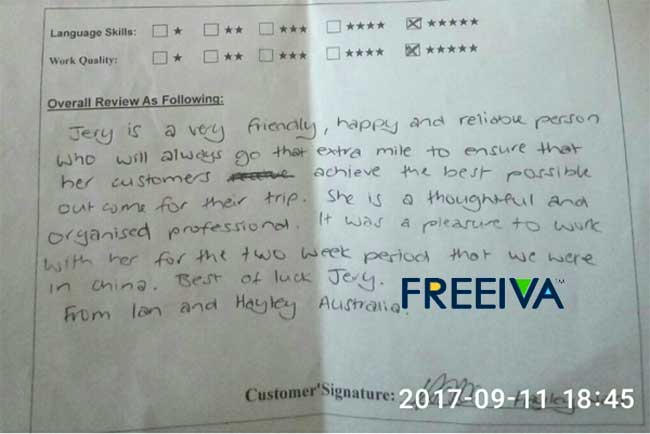 Language Skills: ★ ★★ ★★★ ★★★★ ★★★★★
Work Quality: ★ ★★ ★★★ ★★★★ ★★★★★
Overall Review As Following:
Jery is a very friendly, happy and reliable person
who will always go that extra mile to ensure that
her customers achieve the best possible
out come for their trip. She is a thoughtful and
organised professional. It was a pleasure to work
with her for the two week period that we were
in china. Best of luck Jery.
From Ian and Hayley Australia.
FREEIVA
Customer'Signature:
2017-09-11 18:45